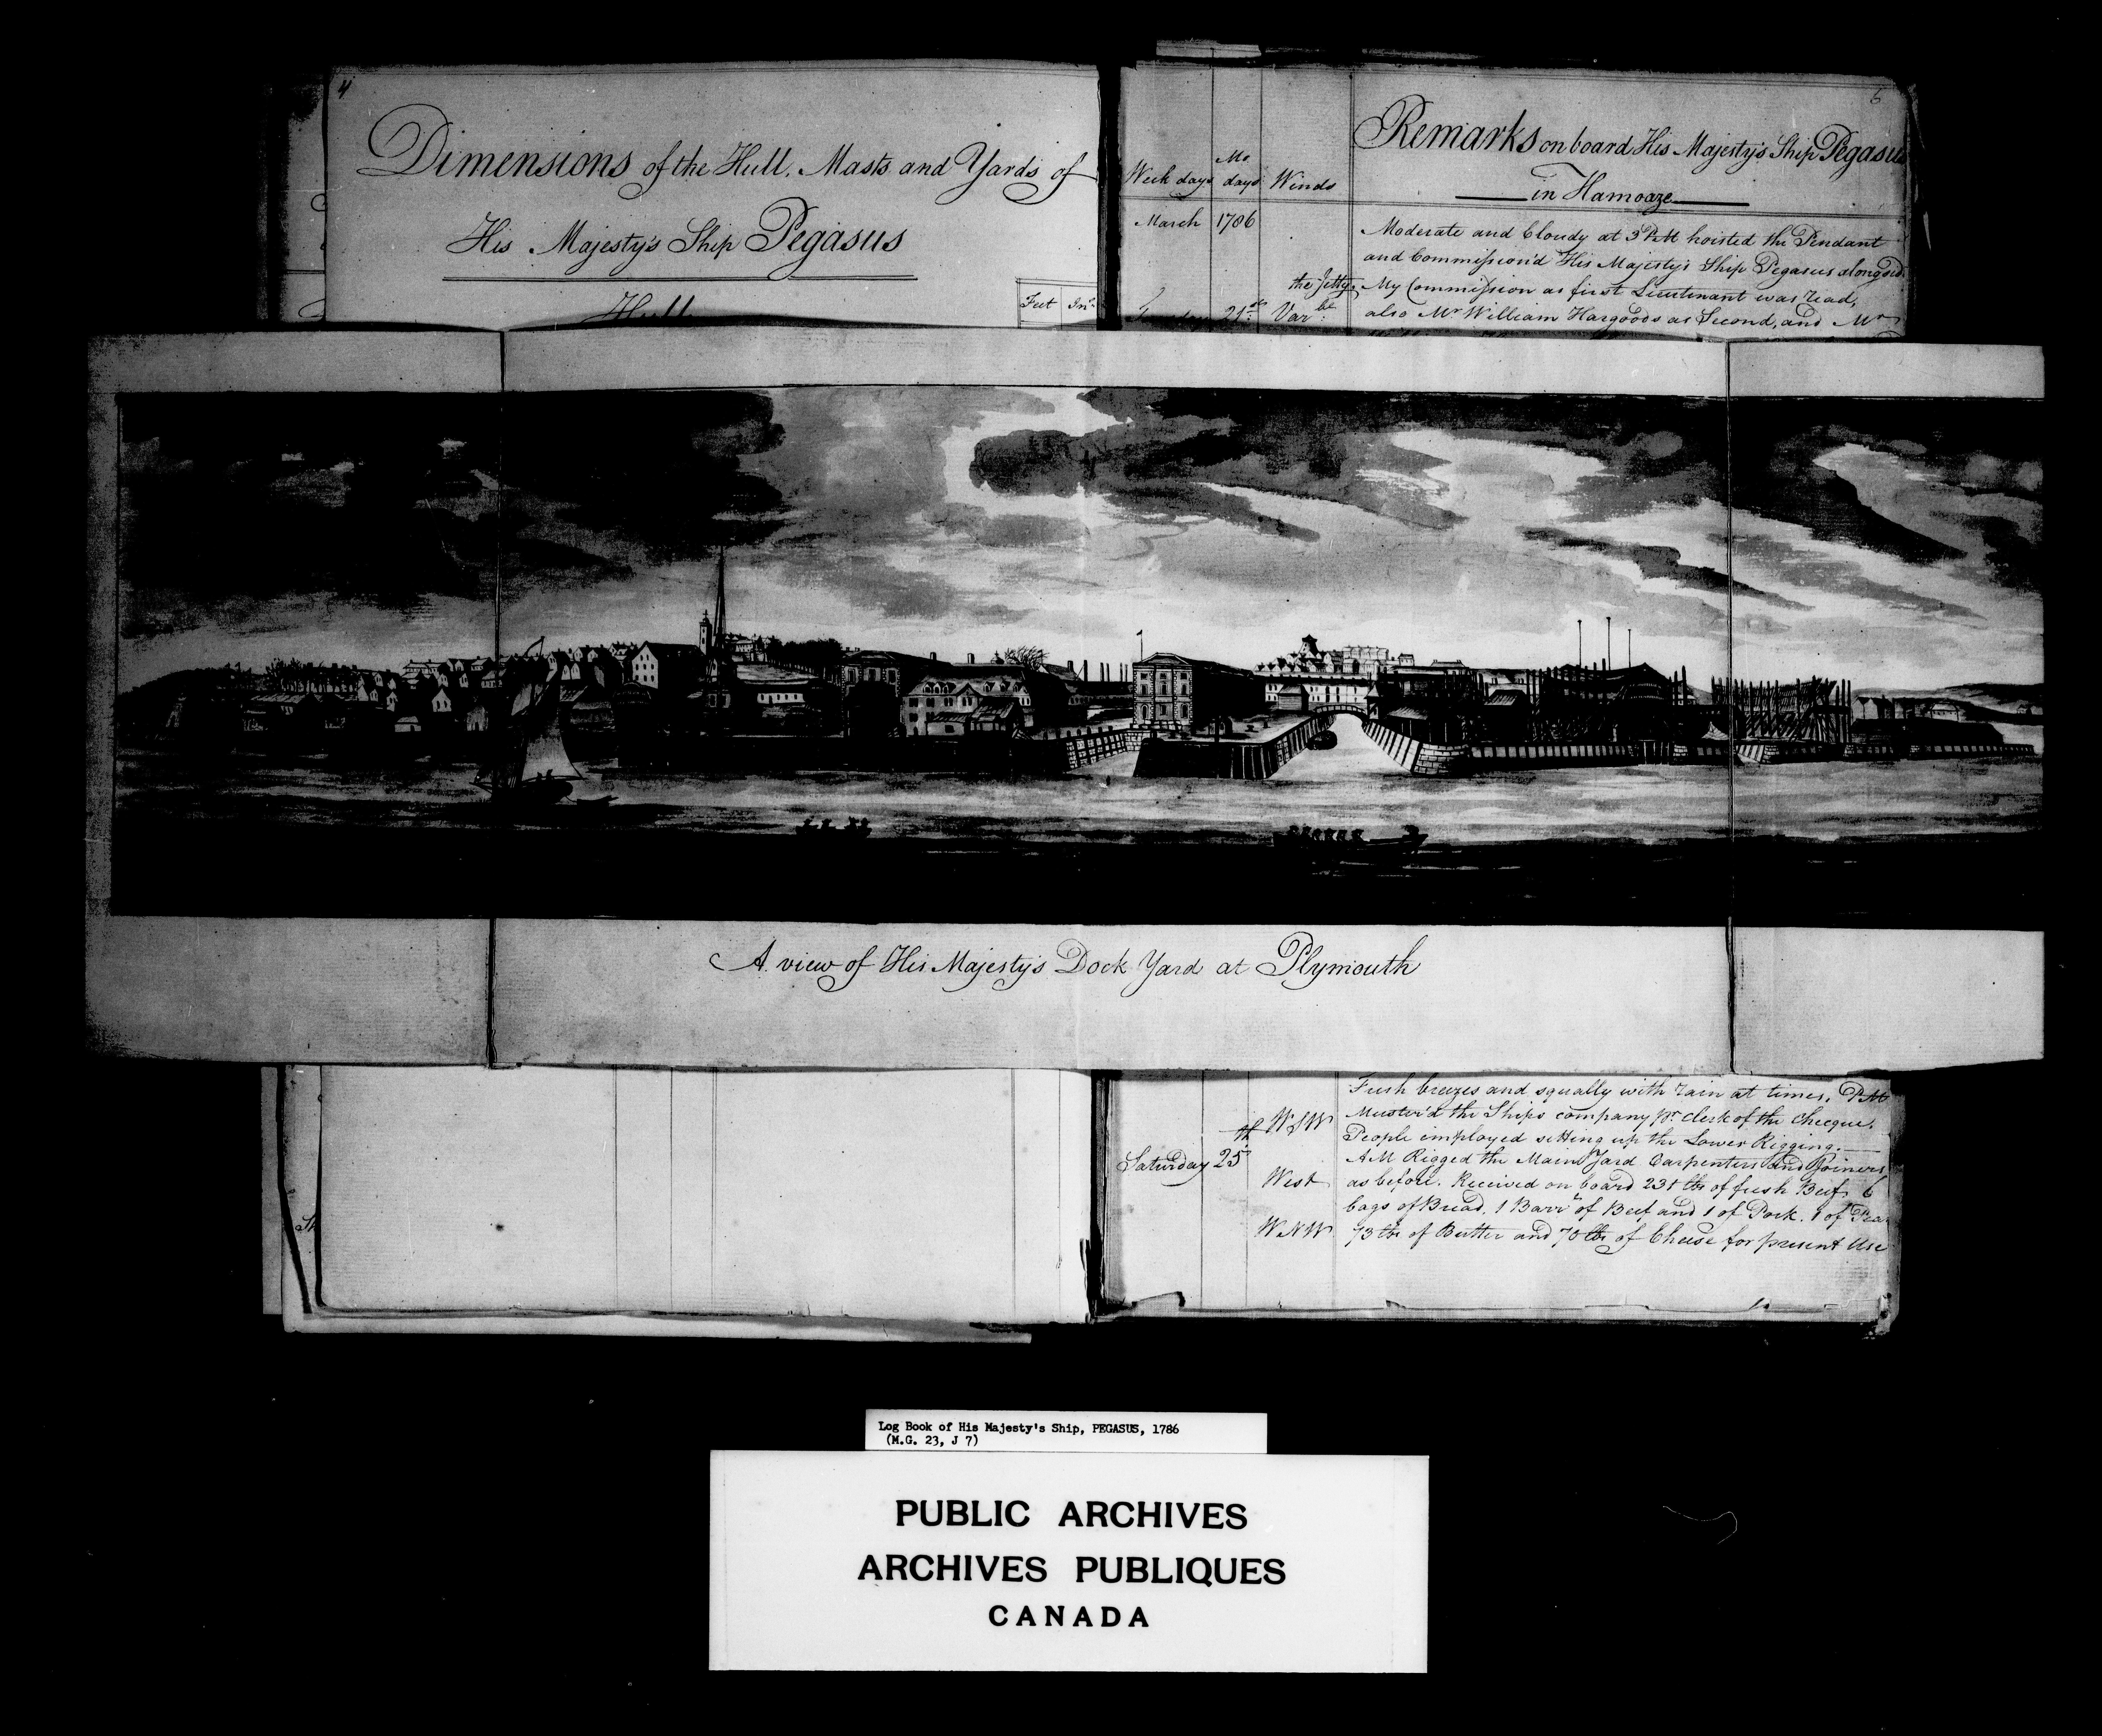 4
Dimensions of the Hull, Masts and Yards of
His Majesty's Ship Pegasus
Hull
Feet Ins
5
Remarks on board His Majesty's Ship Pegasus
in Hamoaze
Week days Mo days Winds
March 1786
Moderate and Cloudy at 3 PM hoisted the Pendant
and Commission'd His Majesty's Ship Pegasus alongside
the Jetty, My Commission as first Lieutenant was read,
21st Varbe also Mr William Hargoods as Second, and Mr
A view of His Majesty's Dock Yard at Plymouth
Fresh breezes and squally with rain at times. PM
WSW Muster'd the Ships company pr Clerk of the Cheque.
People employed setting up the Lower Rigging.
Saturday 25th AM Rigged the Main Yard Carpenters and Joiners
West as before. Received on board 231 lbs of fresh Beef 6
bags of Bread, 1 Barrl of Beef and 1 of Pork. 1 of Pea
WNW 73 lbs of Butter and 70 lbs of Cheese for present Use
Log Book of His Majesty's Ship, PEGASUS, 1786
(M.G. 23, J 7)
PUBLIC ARCHIVES
ARCHIVES PUBLIQUES
CANADA